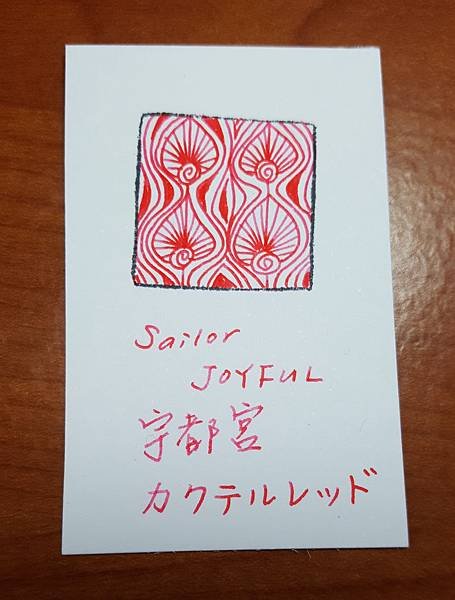 Sailor
JOYFUL
宇都宮
カクテルレッド